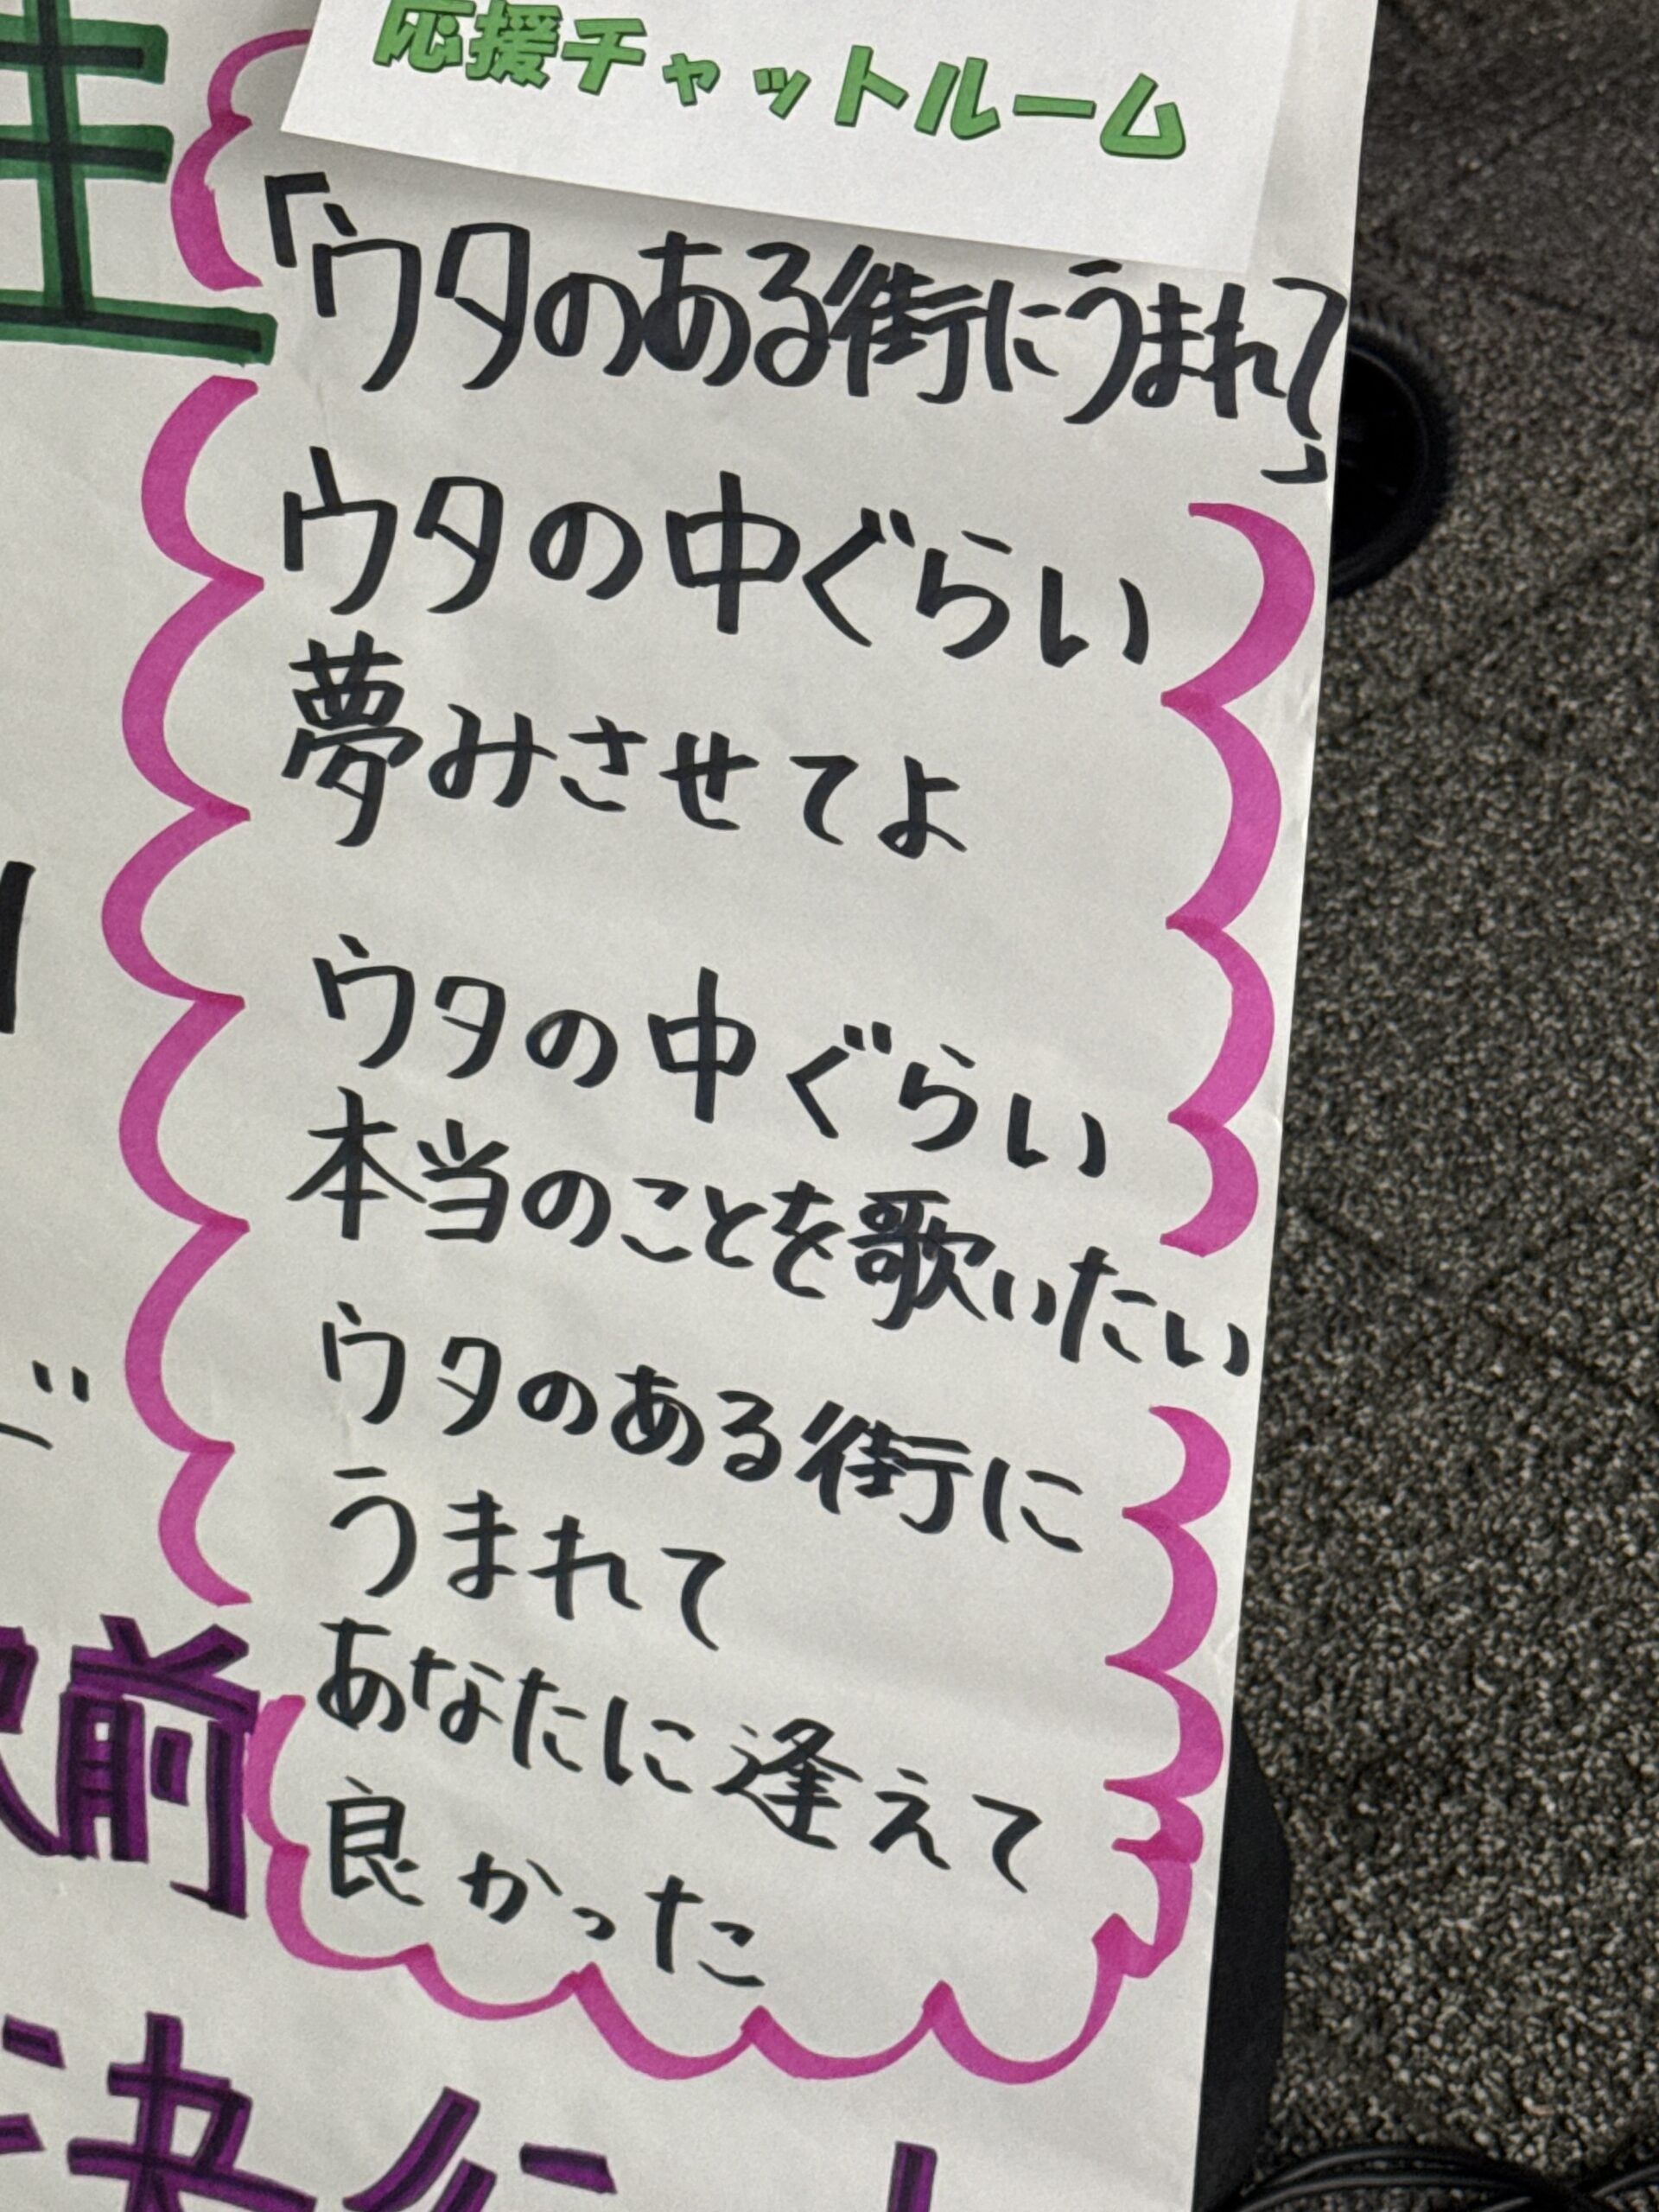 応援チャットルーム
「ウタのある街にうまれて」
ウタの中ぐらい
夢みさせてよ
ウタの中ぐらい
本当のことを歌いたい
ウタのある街に
うまれて
あなたに逢えて
良かった
前